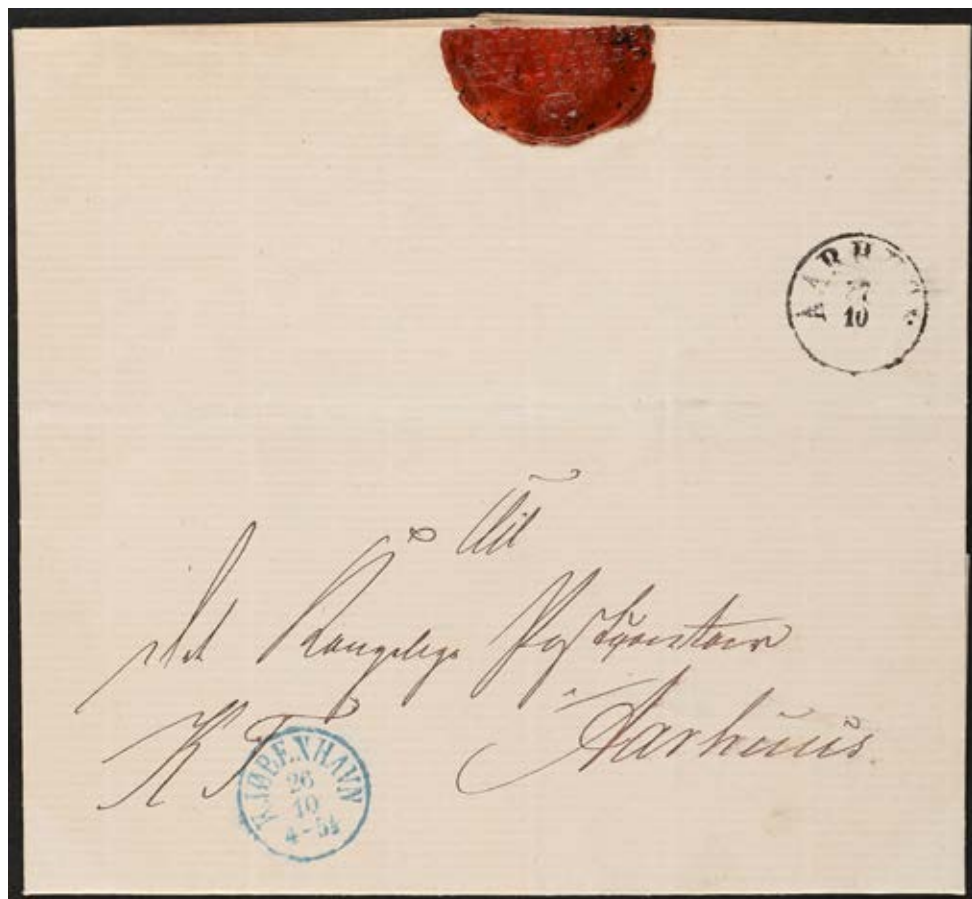 AARHUUS.
27
10
Til
det Kongelige Postkontoir
Aarhuus.
K T
KJØBENHAVN
26
10
4-5½